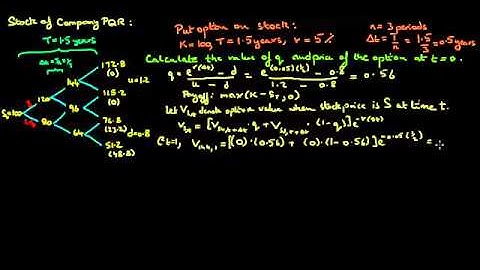 Stock of Company PQR:
T=1.5 years
Δt=T/n=1/2
S₀=100
120
80
144
96
64
172.8
(0)
115.2
(0)
76.8
(23.2)
51.2
(48.8)
u=1.2
d=0.8
Put option on stock:
K=100, T=1.5 years, r=5%
n=3 periods
Δt=T/n=1.5/3=0.5 years
Calculate the value of q and price of the option at t=0.
q = (e^{r(Δt)} - d)/(u - d) = (e^{(0.05)(1/2)} - 0.8)/(1.2 - 0.8) = 0.56
Payoff: max(K-S_T, 0)
Let V_{S,t} denote option value when stock price is S at time t.
V_{S,t} = [V_{Su,t+Δt} · q + V_{Sd,t+Δt} · (1-q)]e^{-r(Δt)}
t=1, V_{144,1} = [(0)·(0.56) + (0)·(1-0.56)]e^{-0.05(1/2)} =